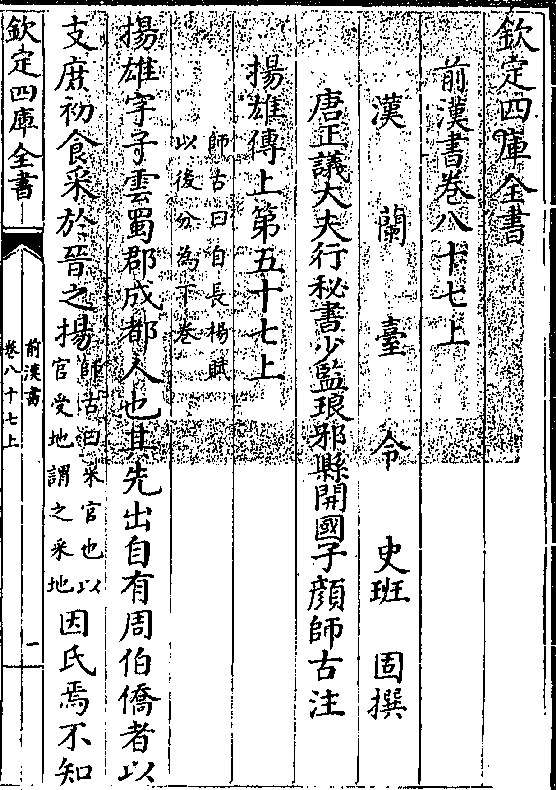 欽定四庫全書
前漢書卷八十七上
漢蘭臺令史班固撰
唐正議大夫行秘書少監琅邪縣開國子顔師古注
揚雄傳上第五十七上
師古曰自長楊賦
以後分為下卷
揚雄字子雲蜀郡成都人也其先出自有周伯僑者以
支庶初食采於晉之揚師古曰采官也以官受地謂之采地因氏焉不知
欽定四庫全書
前漢書
卷八十七上
一